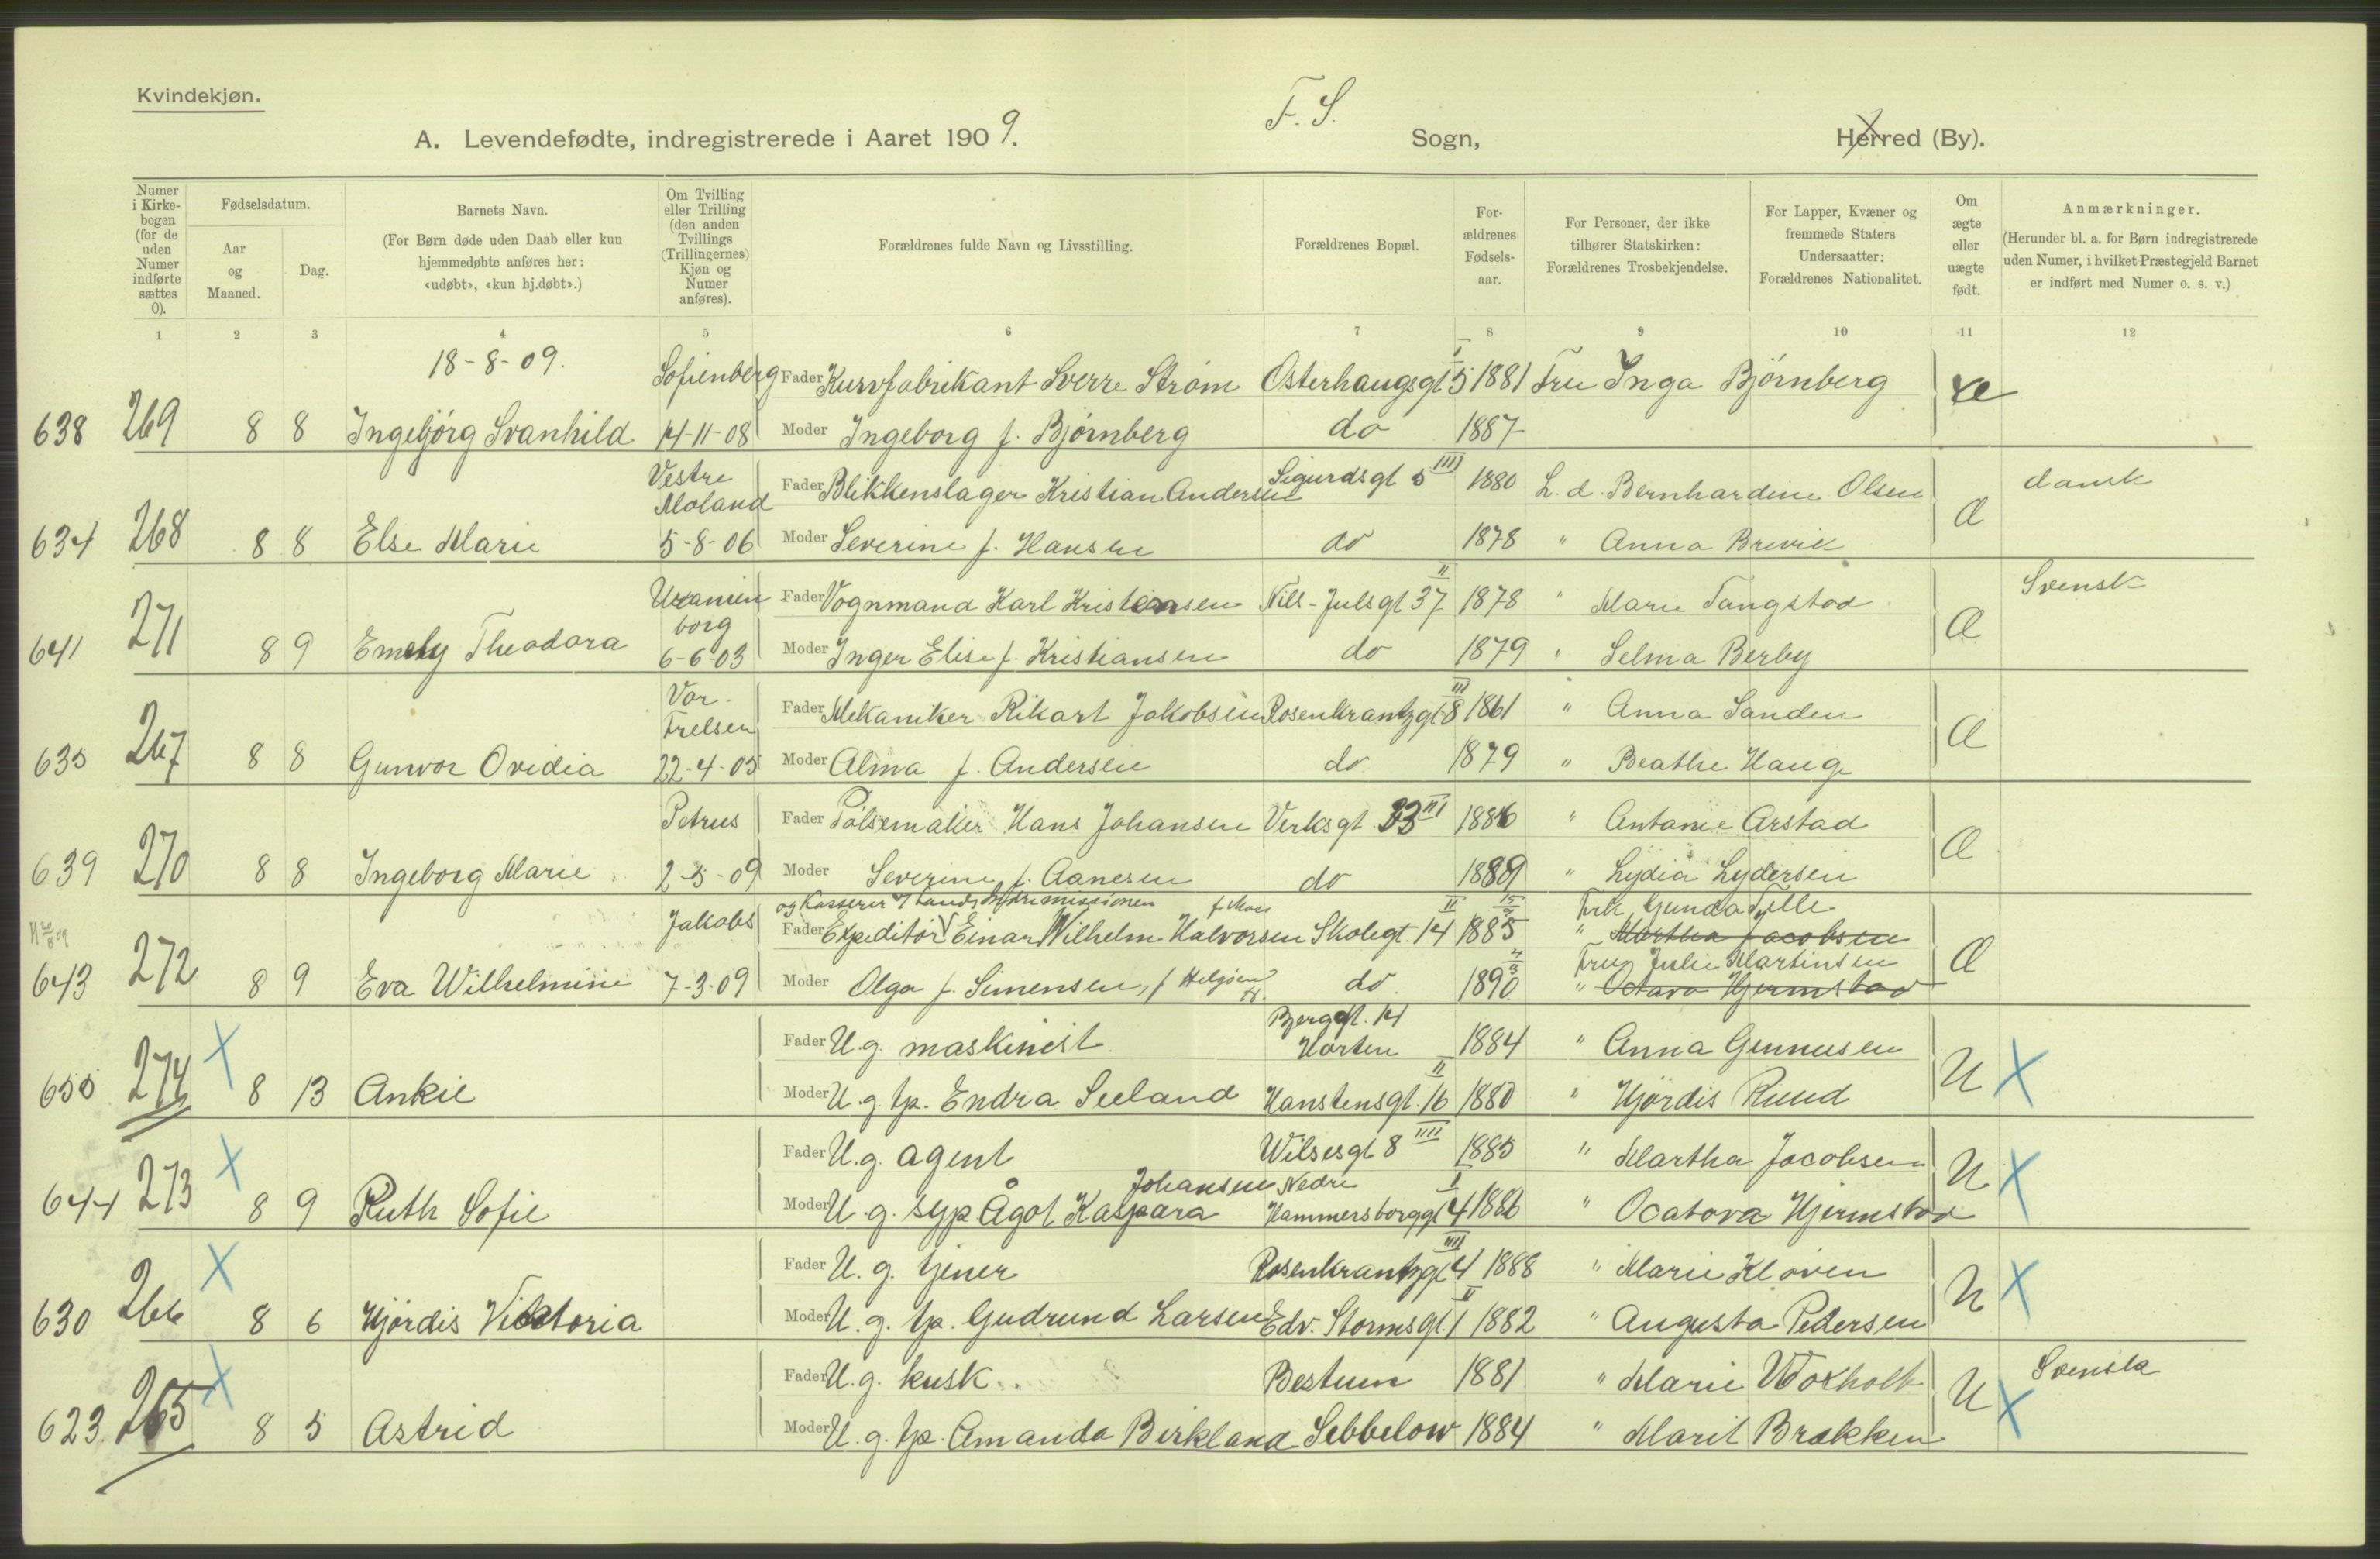 Kvindekjøn.
F. S.
A. Levendefødte, indregistrerede i Aaret 1909. Sogn, Herred (By).
Numer i Kirkebogen (for de uden Numer indførte sættes 0).
Fødselsdatum.
Aar og Maaned.
Dag.
Barnets Navn.
(For Børn døde uden Daab eller kun hjemmedøbte anføres her: «udøbt», «kun hj.døbt».)
Om Tvilling eller Trilling (den anden Tvillings (Trillingernes) Kjøn og Numer anføres).
Forældrenes fulde Navn og Livsstilling.
Forældrenes Bopæl.
Forældrenes Fødselsaar.
For Personer, der ikke tilhører Statskirken: Forældrenes Trosbekjendelse.
For Lapper, Kvæner og fremmede Staters Undersaatter: Forældrenes Nationalitet.
Om ægte eller uægte født.
Anmærkninger.
(Herunder bl. a. for Børn indregistrerede uden Numer, i hvilket Præstegjeld Barnet er indført med Numer o. s. v.)
1 2 3 4 5 6 7 8 9 10 11 12
18-8-09.
Sofienberg Fader Kurvfabrikant Sverre Strøm Osterhaugsgt 5 I 1881 Fru Inga Bjørnberg Æ
638 269 8 8 Ingebjørg Svanhild 14-11-08 Moder Ingeborg f. Bjørnberg do 1887
Vestre Moland Fader Blikkenslager Kristian Andersen Sigurdsgt 5 IIII 1880 L. d. Bernhardine Olsen dansk
634 268 8 8 Else Marie 5-8-06 Moder Severine f. Hansen do 1878 " Anna Brevik Æ
Uranienborg Fader Vognmand Karl Kristensen Nils-Julsgt 37 II 1878 " Marie Tangstad Svensk
641 271 8 9 Emely Theodora 6-6-03 Moder Inger Elise f. Kristiansen do 1879 " Selma Berby Æ
Vor Frelsen Fader Mekaniker Rikart Jakobsen Rosenkrantzgt 8 III 1861 " Anna Sanden
635 267 8 8 Gunvor Ovidia 22-4-05 Moder Alma f. Andersen do 1879 " Beathe Haug Æ
Petrus Fader Pølsemaker Hans Johansen Verksgt. 33 III 1886 " Antanie Arstad
639 270 8 8 Ingeborg Marie 2-5-09 Moder Severine f. Aanesen do 1889 " Lydia Lydersen Æ
og Kasserer Frk Gunda Tille
Jakobs Fader Expeditør Einar Wilhelm Halvorsen Skolegt. 14 II 1885 " Martha Jacobsen
Fru Julie Martinsen
643 272 8 9 Eva Wilhelmine 7-3-09 Moder Olga f. Simensen, do. 1890 " Octava Hjermstad Æ
Bjerggt. 14
Fader U.g. maskinist Horten 1884 " Anna Gunnusen
655 274 X 8 13 Ankie Moder U.g. tp. Endra Seeland Hanstensgt. 16 II 1880 " Hjørdis Ruud U X
Fader U.g. agent Wilsesgt 8 IIII 1885 " Martha Jacobsen
Johansen Nedre
644 273 X 8 9 Ruth Sofie Moder U.g. syp Ågot Kaspara Hammersborggt 4 I 1886 " Ocatova Hjermstad U X
Fader U.g. tjener Rosenkrantzgt 4 IIII 1888 " Marie Kloven
630 266 X 8 6 Hjørdis Viktoria Moder U.g. tp. Gudrund Larsen Edv. Stormsgt. 1 II 1882 " Augusta Pedersen U X
Fader U.g. kusk Bestum 1881 " Marie Woxholt Svensk
623 265 X 8 5 Astrid Moder U.g. tp. Amanda Birkland Sebbelow 1884 " Marit Brakken U X